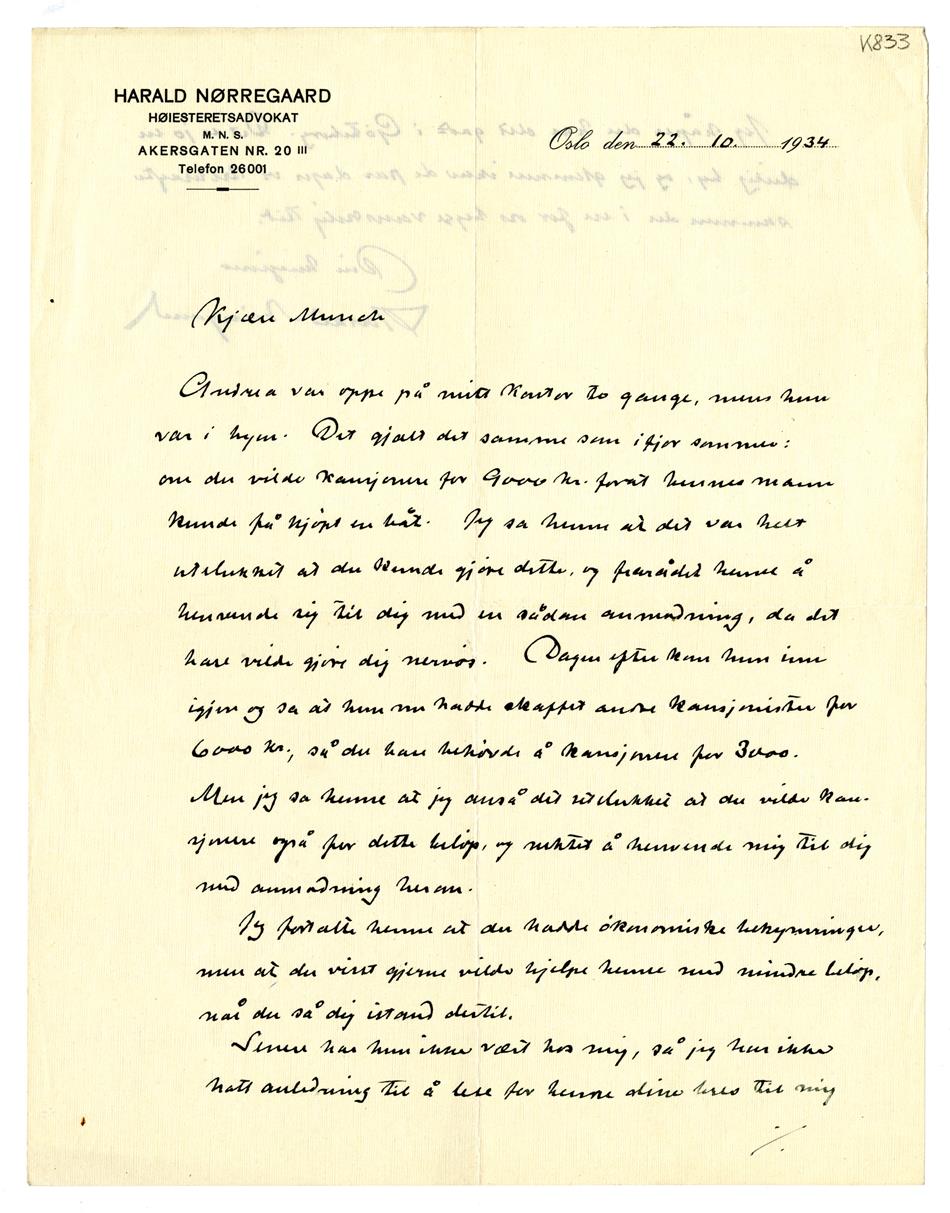 K833
HARALD NØRREGAARD
HØIESTERETSADVOKAT
M. N. S.
AKERSGATEN NR. 20 III
Telefon 26001
Oslo den 22. 10. 1934
Kjære Munch
Andrea var oppe på mitt kontor to gange, mens hun
var i byen. Det gjalt det samme som ifjor sommer:
om du vilde kausjonere for 9000 kr. forat hennes mann
kunde få kjøpt en båt. Jeg sa henne at det var helt
utelukket at du kunde gjøre dette, og frarådet henne å
henvende sig til dig med en sådan anmodning, da det
bare vilde gjøre dig nervøs. Dagen efter kom hun inn
igjen og sa at hun nu hadde skaffet andre kausjonister for
6000 kr., så du bare behövde å kausjonere for 3000.
Men jeg sa henne at jeg anså det utelukket at du vilde kau-
sjonere også for dette beløp, og nektet å henvende mig til dig
med anmodning herom.
Jeg fortalte henne at du hadde ökonomiske bekymringer,
men at du visst gjerne vilde hjelpe henne med mindre beløp,
når du så dig istand dertil.
Senere har hun ikke vært hos mig, så jeg har ikke
hatt anledning til å lese for henne dine brev til mig
./.